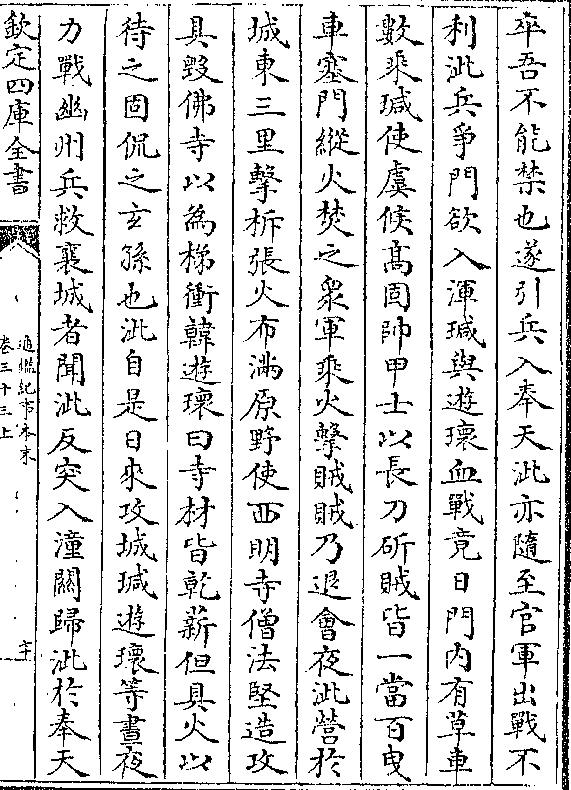 卒吾不能禁也遂引兵入奉天泚亦隨至官軍出戰不
利泚兵爭門欲入渾瑊與遊瓌血戰竟日門内有草車
數乘瑊使虞候髙固帥甲士以長刀斫賊皆一當百曳
車塞門縱火焚之衆軍乘火擊賊賊乃退會夜泚營於
城東三里擊柝張火布滿原野使西明寺僧法堅造攻
具毀佛寺以為梯衝韓遊瓌曰寺材皆乾薪但具火以
待之固侃之玄孫也泚自是日來攻城瑊遊瓌等晝夜
力戰幽州兵救襄城者聞泚反突入潼關歸泚於奉天
欽定四庫全書
通鑑紀事本末
卷三十三上